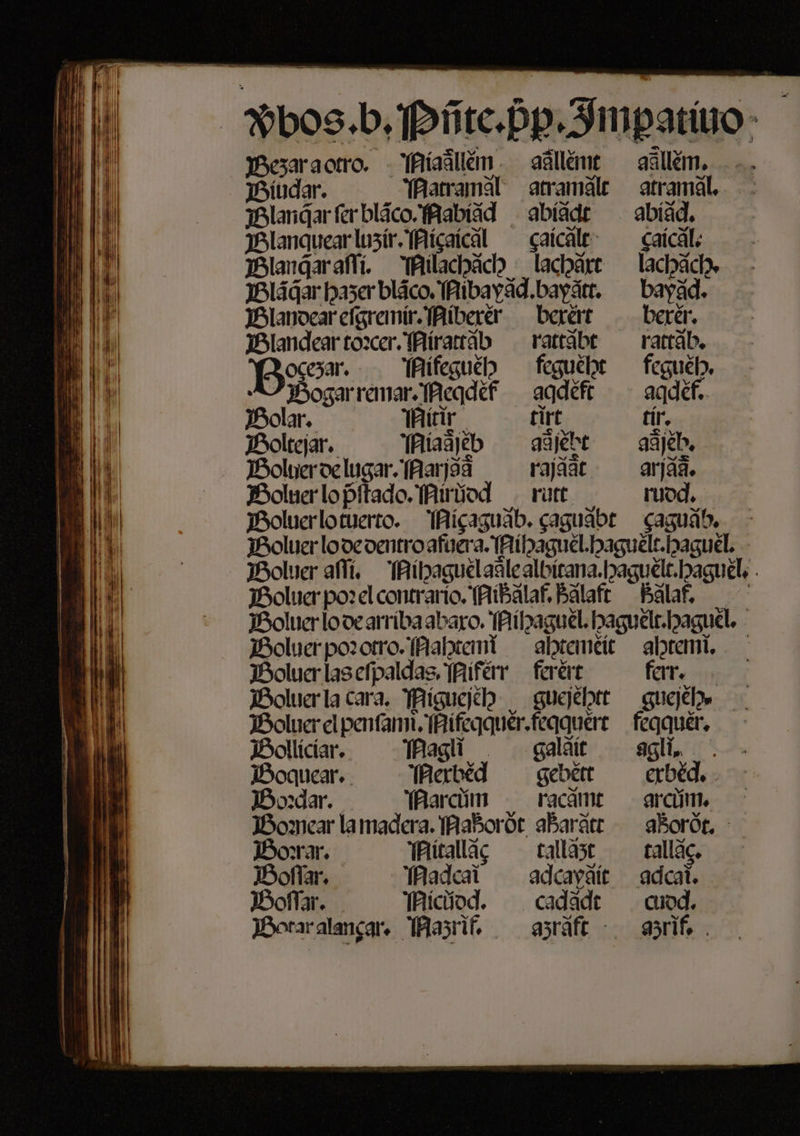 Vbos.b. Pñte.p̄p. Impatiuo.
Bezar a otro. Niaâllĕm. aâllĕmt aâllĕm.
Biudar. Natramăl atramălt atramăl.
Blanq̄ar ser blāco. Nabiăd abiădt abiăd.
Blanquear luzir. Niçaicăl çaicălt çaicăl.
Blanq̄ar assi. Nilachăch lachăxt lachăch.
Blāq̄ar hazer blāco. Nibayăd. bayătt. bayăd.
Blandear esgremir. Niberĕr berĕrt berĕr.
Blandear torcer. Nirattăb rattăbt rattăb.
Bocezar. Nifeguĕh feguĕht feguĕh.
Bogar remar. Neqdĕf aqdĕft aqdĕf.
Bolar. Nitir tirt tir.
Boltejar. Niaâjĕb aâjĕbt aâjĕb.
Boluer de lugar. Narjaâ rajaât arjaâ.
Boluer lo pstado. Nirŭod rutt ruod.
Boluer lo tuerto. Niçaguăb. çaguăbt çaguăb.
Boluer lo de dentro afuera. Nihaguĕl. haguĕlt. haguĕl.
Boluer assi. Nihaguĕl aâle albitana. haguĕlt. haguĕl.
Boluer por el contrario. Nihălaf. hălaft hălaf.
Boluer lo de arriba abaxo. Nihaguĕl. haguĕlt. haguĕl.
Boluer por otro. Nahtemi ahtemĕit ahtemi.
Boluer las espaldas. Nifĕrr ferĕrt ferr.
Boluer la cara. Niguejĕh guejĕhtt guejĕh.
Boluer el pensami. Nifeqquĕr. feqquĕrt feqquĕr.
Bolliciar. Nagli galăit agli.
Boquear. Nerbĕd gebĕtt erbĕd.
Bordar. Narcŭm racămt arcŭm.
Bornear la madera. Nahorŏt aharătt ahorŏt.
Borrar. Nitallăç tallăzt tallăç.
Bossar. Nadcaĭ adcayăit adcaĭ.
Bossar. Nicŭod. cadădt cuod.
Botar alançar. Nazrĭf. azrăft azrĭf.